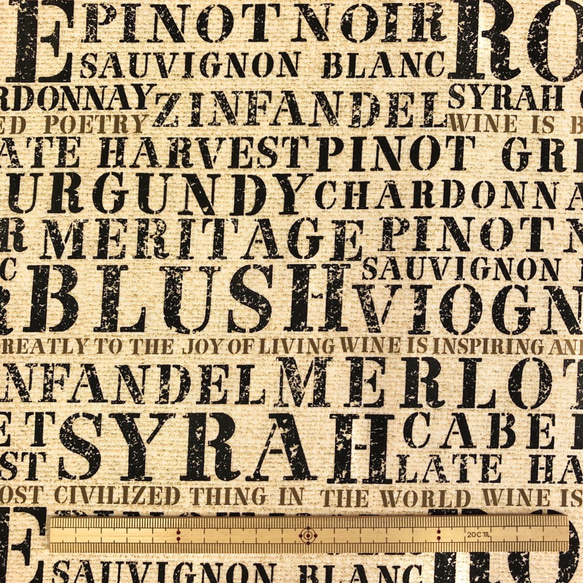 E PINOT NOIR RO
SAUVIGNON BLANC
RDONNAY ZINFANDEL SYRAH
ED POETRY WINE IS B
ATE HARVEST PINOT GRI
URGUNDY CHARDONNA
R MERITAGE PINOT N
C BLUSH SAUVIGNON
R VIOGN
REATLY TO THE JOY OF LIVING WINE IS INSPIRING AN
NFANDEL MERLOT
ET SYRAH CABE
ST LATE HA
OST CIVILIZED THING IN THE WORLD WINE IS
E RO
SAUVIGNON BLANC